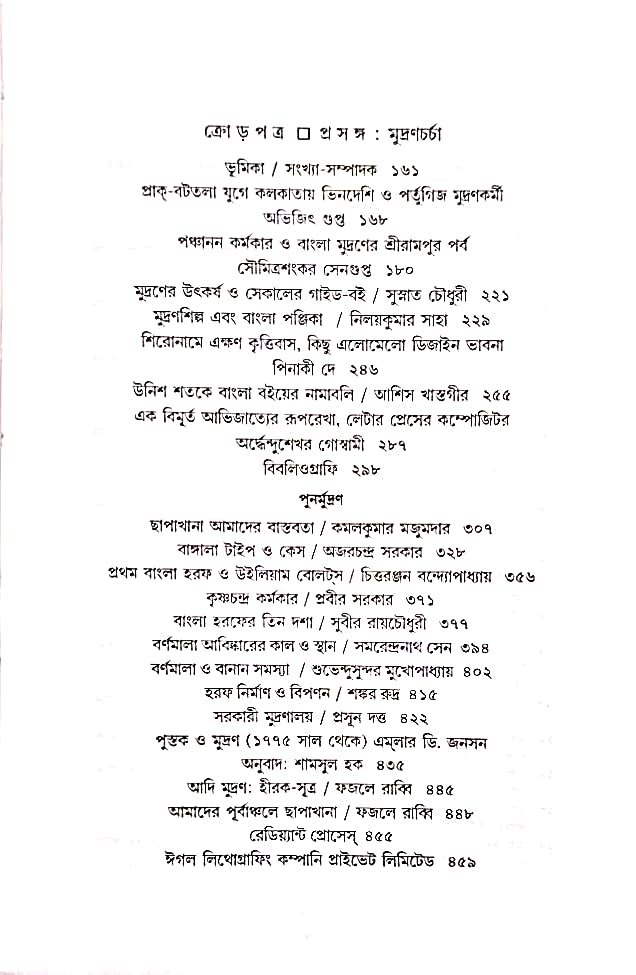 ক্রোড়পত্র □ প্রসঙ্গ : মুদ্রণচর্চা
ভূমিকা / সংখ্যা-সম্পাদক ১৬১
প্রাক্-বটতলা যুগে কলকাতায় ভিনদেশি ও পর্তুগিজ মুদ্রণকর্মী
অভিজিৎ গুপ্ত ১৬৮
পঞ্চানন কর্মকার ও বাংলা মুদ্রণের শ্রীরামপুর পর্ব
সৌমিত্রশংকর সেনগুপ্ত ১৮০
মুদ্রণের উৎকর্ষ ও সেকালের গাইড-বই / সুস্নাত চৌধুরী ২২১
মুদ্রণশিল্প এবং বাংলা পঞ্জিকা / নিলয়কুমার সাহা ২২৯
শিরোনামে এক্ষণ কৃত্তিবাস, কিছু এলোমেলো ডিজাইন ভাবনা
পিনাকী দে ২৪৬
উনিশ শতকে বাংলা বইয়ের নামাবলি / আশিস খাস্তগীর ২৫৫
এক বিমূর্ত আভিজাত্যের রূপরেখা, লেটার প্রেসের কম্পোজিটর
অর্দ্ধেন্দুশেখর গোস্বামী ২৮৭
বিবলিওগ্রাফি ২৯৮
পুনর্মুদ্রণ
ছাপাখানা আমাদের বাস্তবতা / কমলকুমার মজুমদার ৩০৭
বাঙ্গালা টাইপ ও কেস / অজরচন্দ্র সরকার ৩২৮
প্রথম বাংলা হরফ ও উইলিয়াম বোলট্স / চিত্তরঞ্জন বন্দ্যোপাধ্যায় ৩৫৬
কৃষ্ণচন্দ্র কর্মকার / প্রবীর সরকার ৩৭১
বাংলা হরফের তিন দশা / সুবীর রায়চৌধুরী ৩৭৭
বর্ণমালা আবিষ্কারের কাল ও স্থান / সমরেন্দ্রনাথ সেন ৩৯৪
বর্ণমালা ও বানান সমস্যা / শুভেন্দুসুন্দর মুখোপাধ্যায় ৪০২
হরফ নির্মাণ ও বিপণন / শঙ্কর রুদ্র ৪১৫
সরকারী মুদ্রণালয় / প্রসূন দত্ত ৪২২
পুস্তক ও মুদ্রণ (১৭৭৫ সাল থেকে) এম্‌লার ডি. জনসন
অনুবাদ: শামসুল হক ৪৩৫
আদি মুদ্রণ: হীরক-সূত্র / ফজলে রাব্বি ৪৪৫
আমাদের পূর্বাঞ্চলে ছাপাখানা / ফজলে রাব্বি ৪৪৮
রেডিয়্যান্ট প্রোসেস্ ৪৫৫
ঈগল লিথোগ্রাফিং কম্পানি প্রাইভেট লিমিটেড ৪৫৯